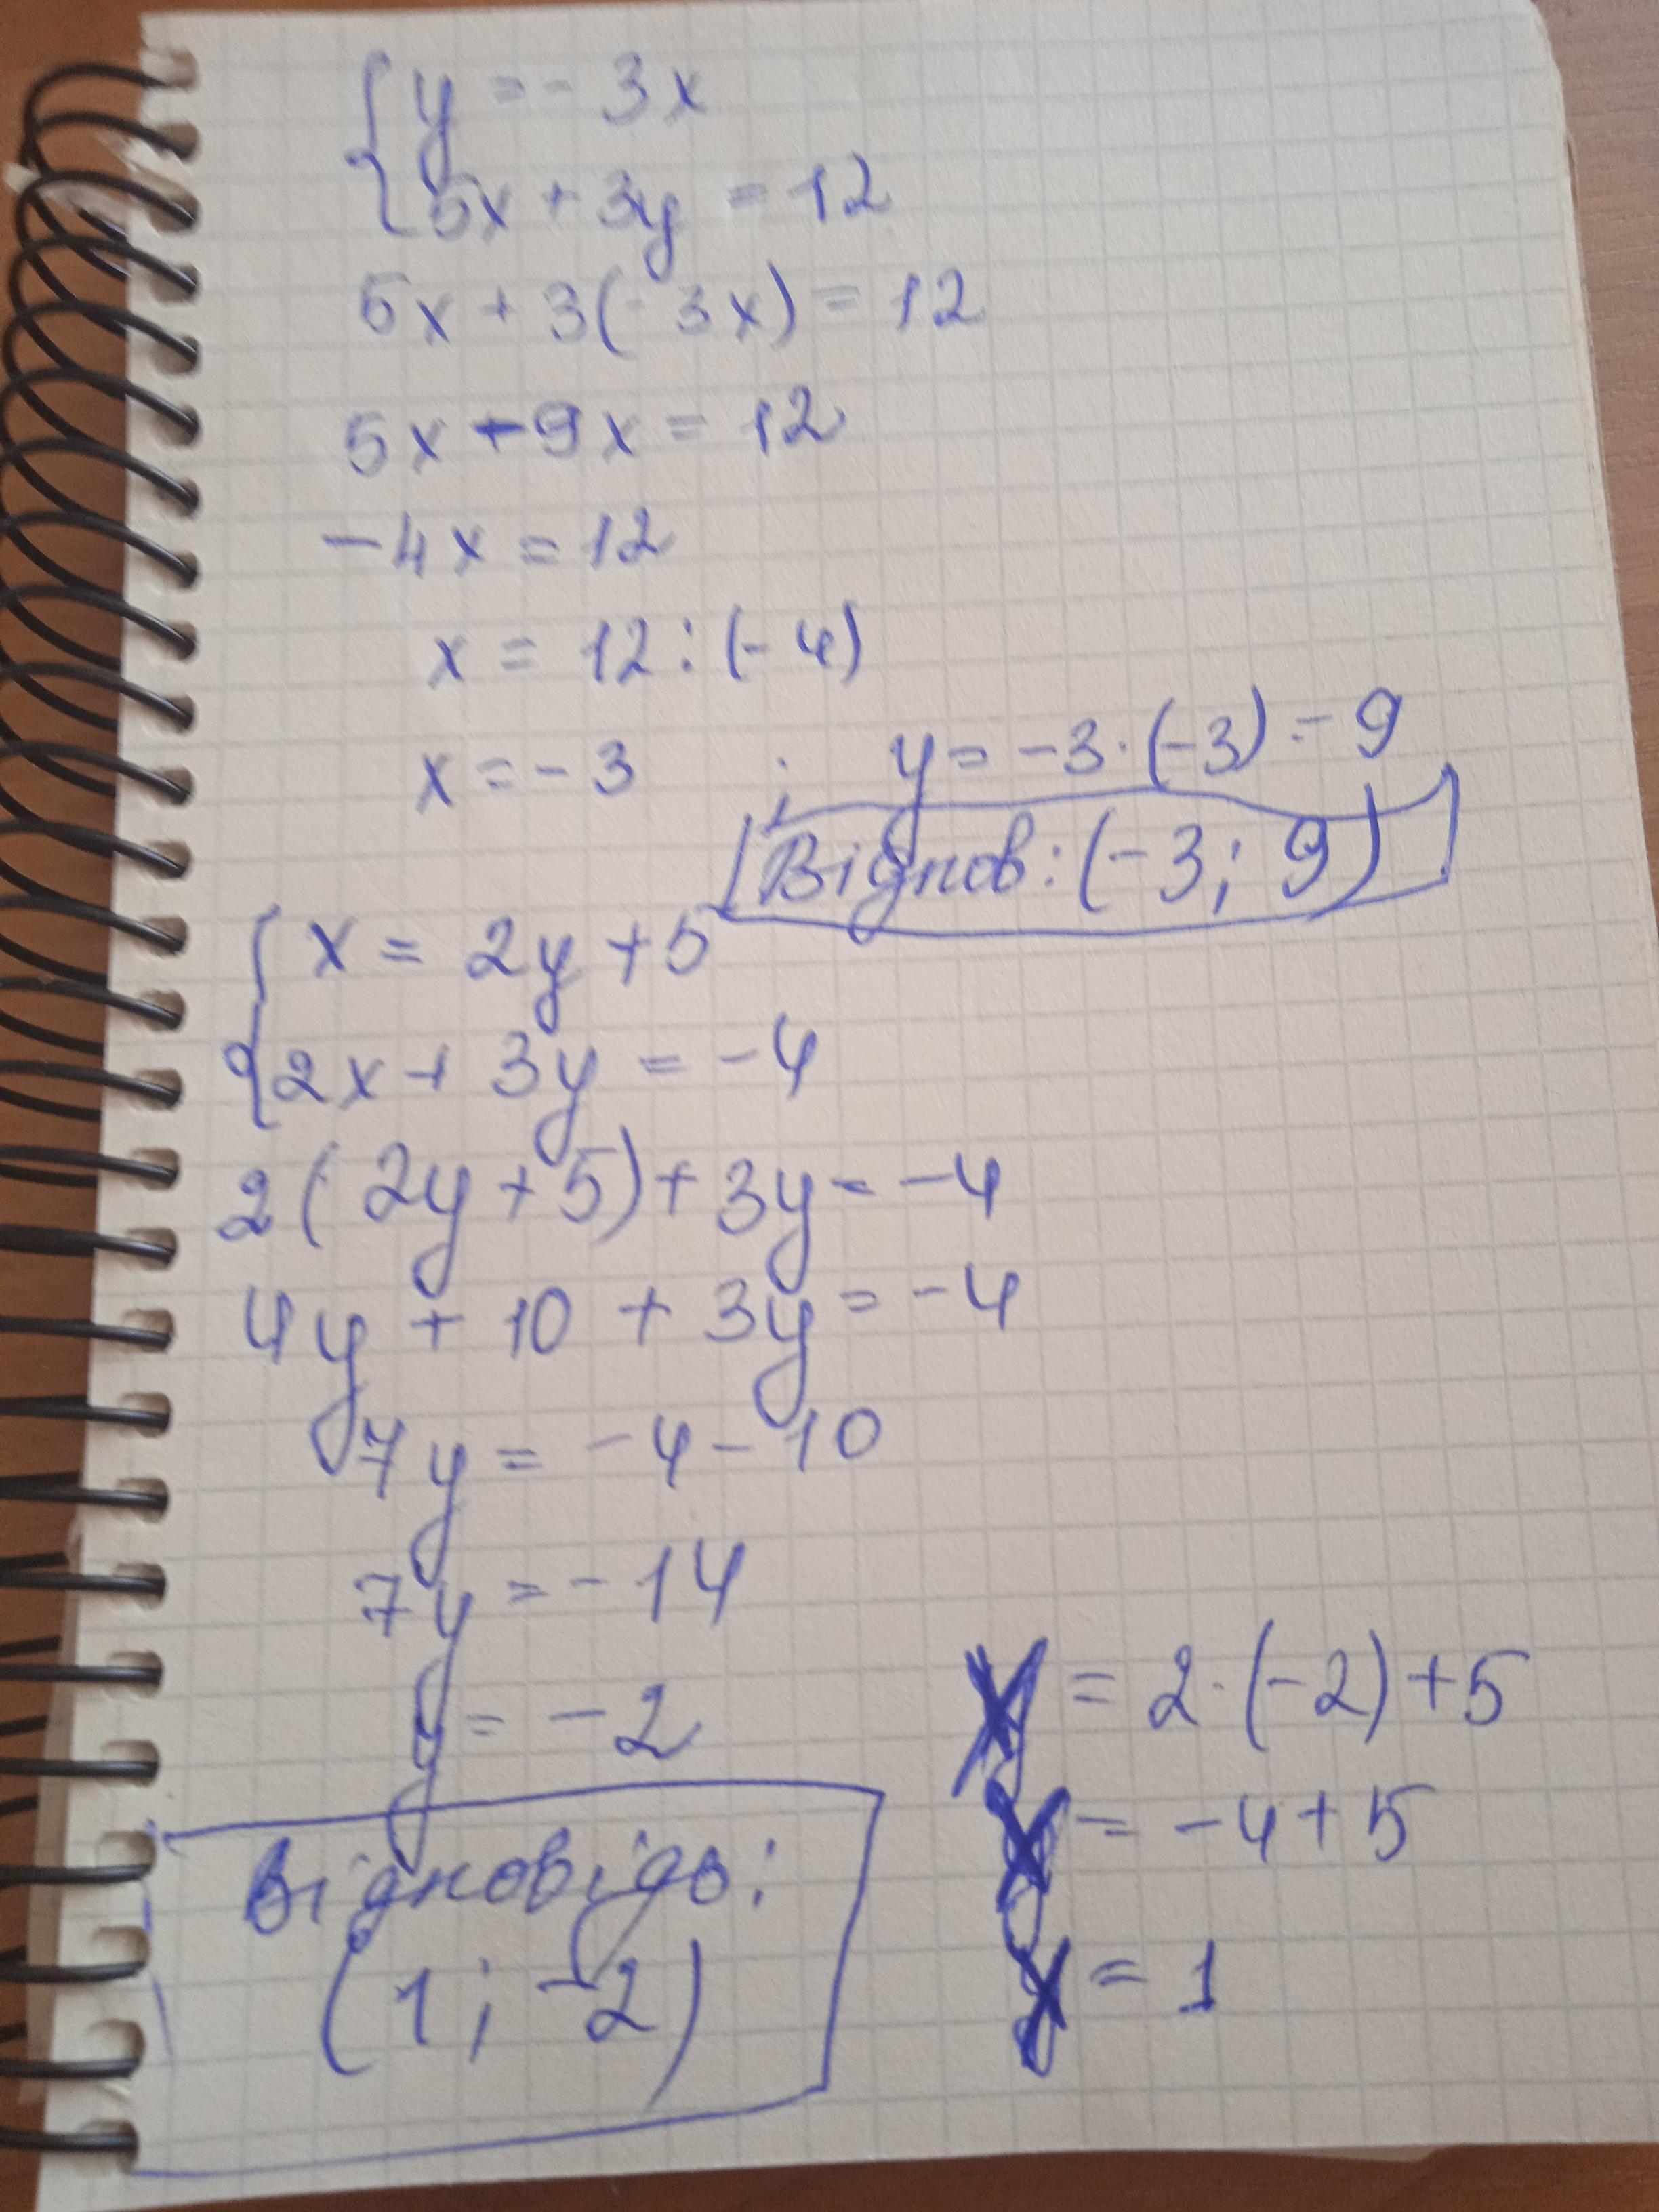 {y = - 3x
5x + 3y = 12
5x + 3(- 3x) = 12
5x - 9x = 12
- 4x = 12
x = 12 : (- 4)
x = - 3 ; y = -3 · (-3) = 9
Відпов: (-3; 9)
{x = 2y + 5
2x + 3y = -4
2(2y + 5) + 3y = -4
4y + 10 + 3y = -4
7y = -4 - 10
7y = -14
y = -2
Відповідь:
(1; -2)
x = 2 · (-2) + 5
x = -4 + 5
x = 1